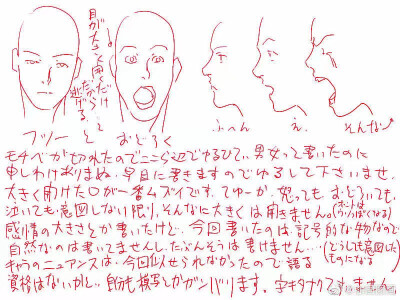 目が大きく開くだけ
だから
逃げる。
フツーと
おどろく
ふつん
え.
そんな〜
モチベが切れたのでここら辺でゆるして。男女って書いたのに
申しわけありませぬ、早目に書きますのでゆるして下さいませ。
大きく開けた口が一番ムズイです。てゆーか、怒っても、おどろいても、
泣いても意図しない限り、そんなに大きくは開きません。
感情の大きさとか書いたけど、今回書いたのは、記号的な物なので
自然なのは書いてませんし、たぶんそうは書けません…(どうしても意図した
ものになる)
キャラのニュアンスは、今回似せられなかったので語る
資格はないかし、自分も模写とかガンバります。字キタナクてすいません